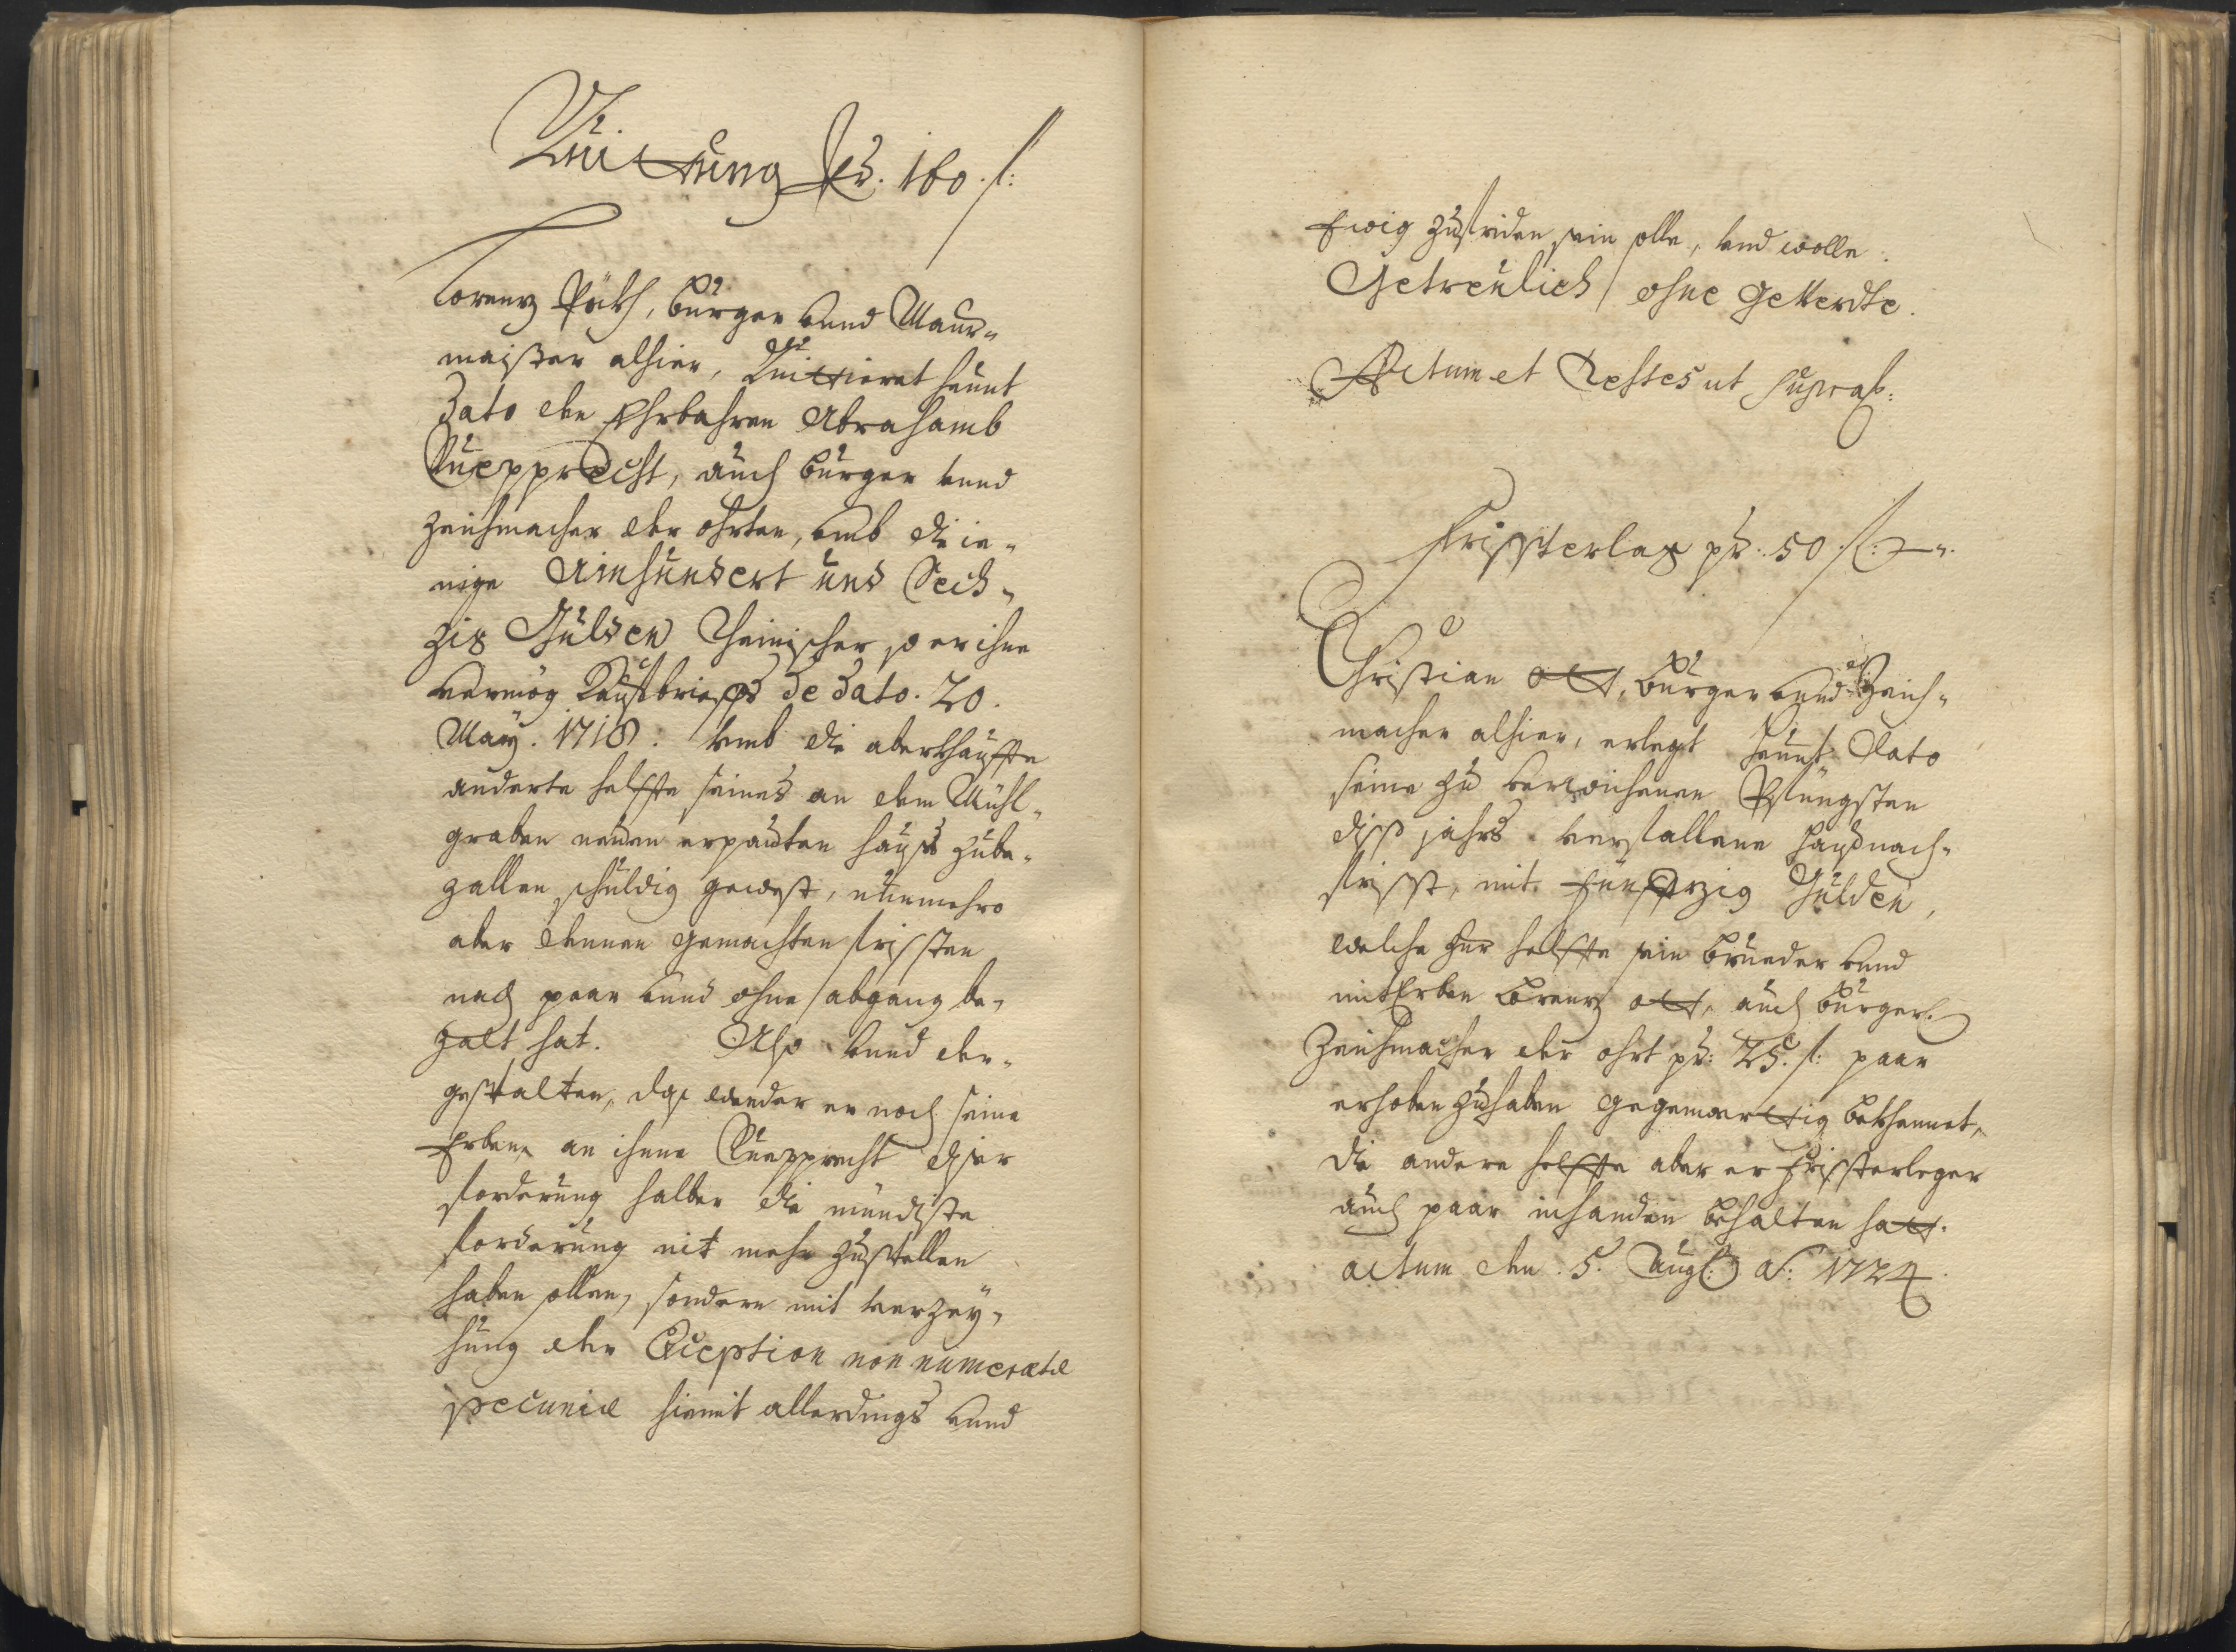 Quittung Pr. 160. f:
Lorenz Päth, burger vnnd Maur-
maister alhier, Quittieret heunt
Dato den Ehrbahren Abrahamb
Ruepprecht, auch burger vnnd
Zeichmacher der ohrten, vmb die ie-
nige Ainhundert und Sech-
zig Gulden Rheinischer so er ihne
vermög Kauffbrieffs de dato. 20.
May. 1718. vmb die aberkhauffte
anderte helffte seines an dem Mühl-
graben neuen erpauten hauses zube-
zallen schuldig gewest, nunmehro
aber dennen gemachten fristen
nach paar vnnd ohne abgang be-
zalt hat. Also vnnd der-
gestalten, das weder er noch seine
Erben, an ihme Ruepprecht diser
forderung halber die mündiste
forderung nit mehr zustellen
haben sollen, sondern mit verzey-
hung der Exception non numeratæ
pecuniæ hiemit allerdings vnnd
Ewig zufriden sein solle, vnd wolle.
Getreulich ohne geverdte.
Actum et Testes ut supra.
Fristerlag pr. 50 f:
Christian Ott, burger vnnd Zeich-
macher alhier, erlegt heunt Dato
seine zu verwichenen Pfüngsten
diss jahrs verfallene hausnach-
frist, mit fünffzig Gulden,
welche zur helffte sein brueder vnnd
mitErben Lorenz Ott, auch burger.
Zeichmacher der ohrt pr: 25. f: paar
erhoben zuhaben gegenwerttig bekhennet,
die andere helffte aber er fristerleger
auch paar inhanden behalten hatt.
actum den 5. Aug: a: 1724.